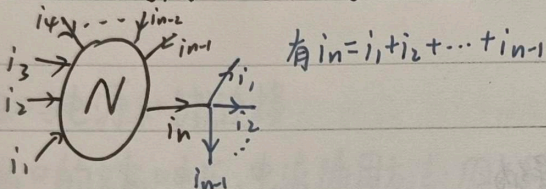 i4 ···· in-2
in-1
i3
i2
i1
N
in
i1
i2
⋮
in-1
有 in=i1+i2+···+in-1